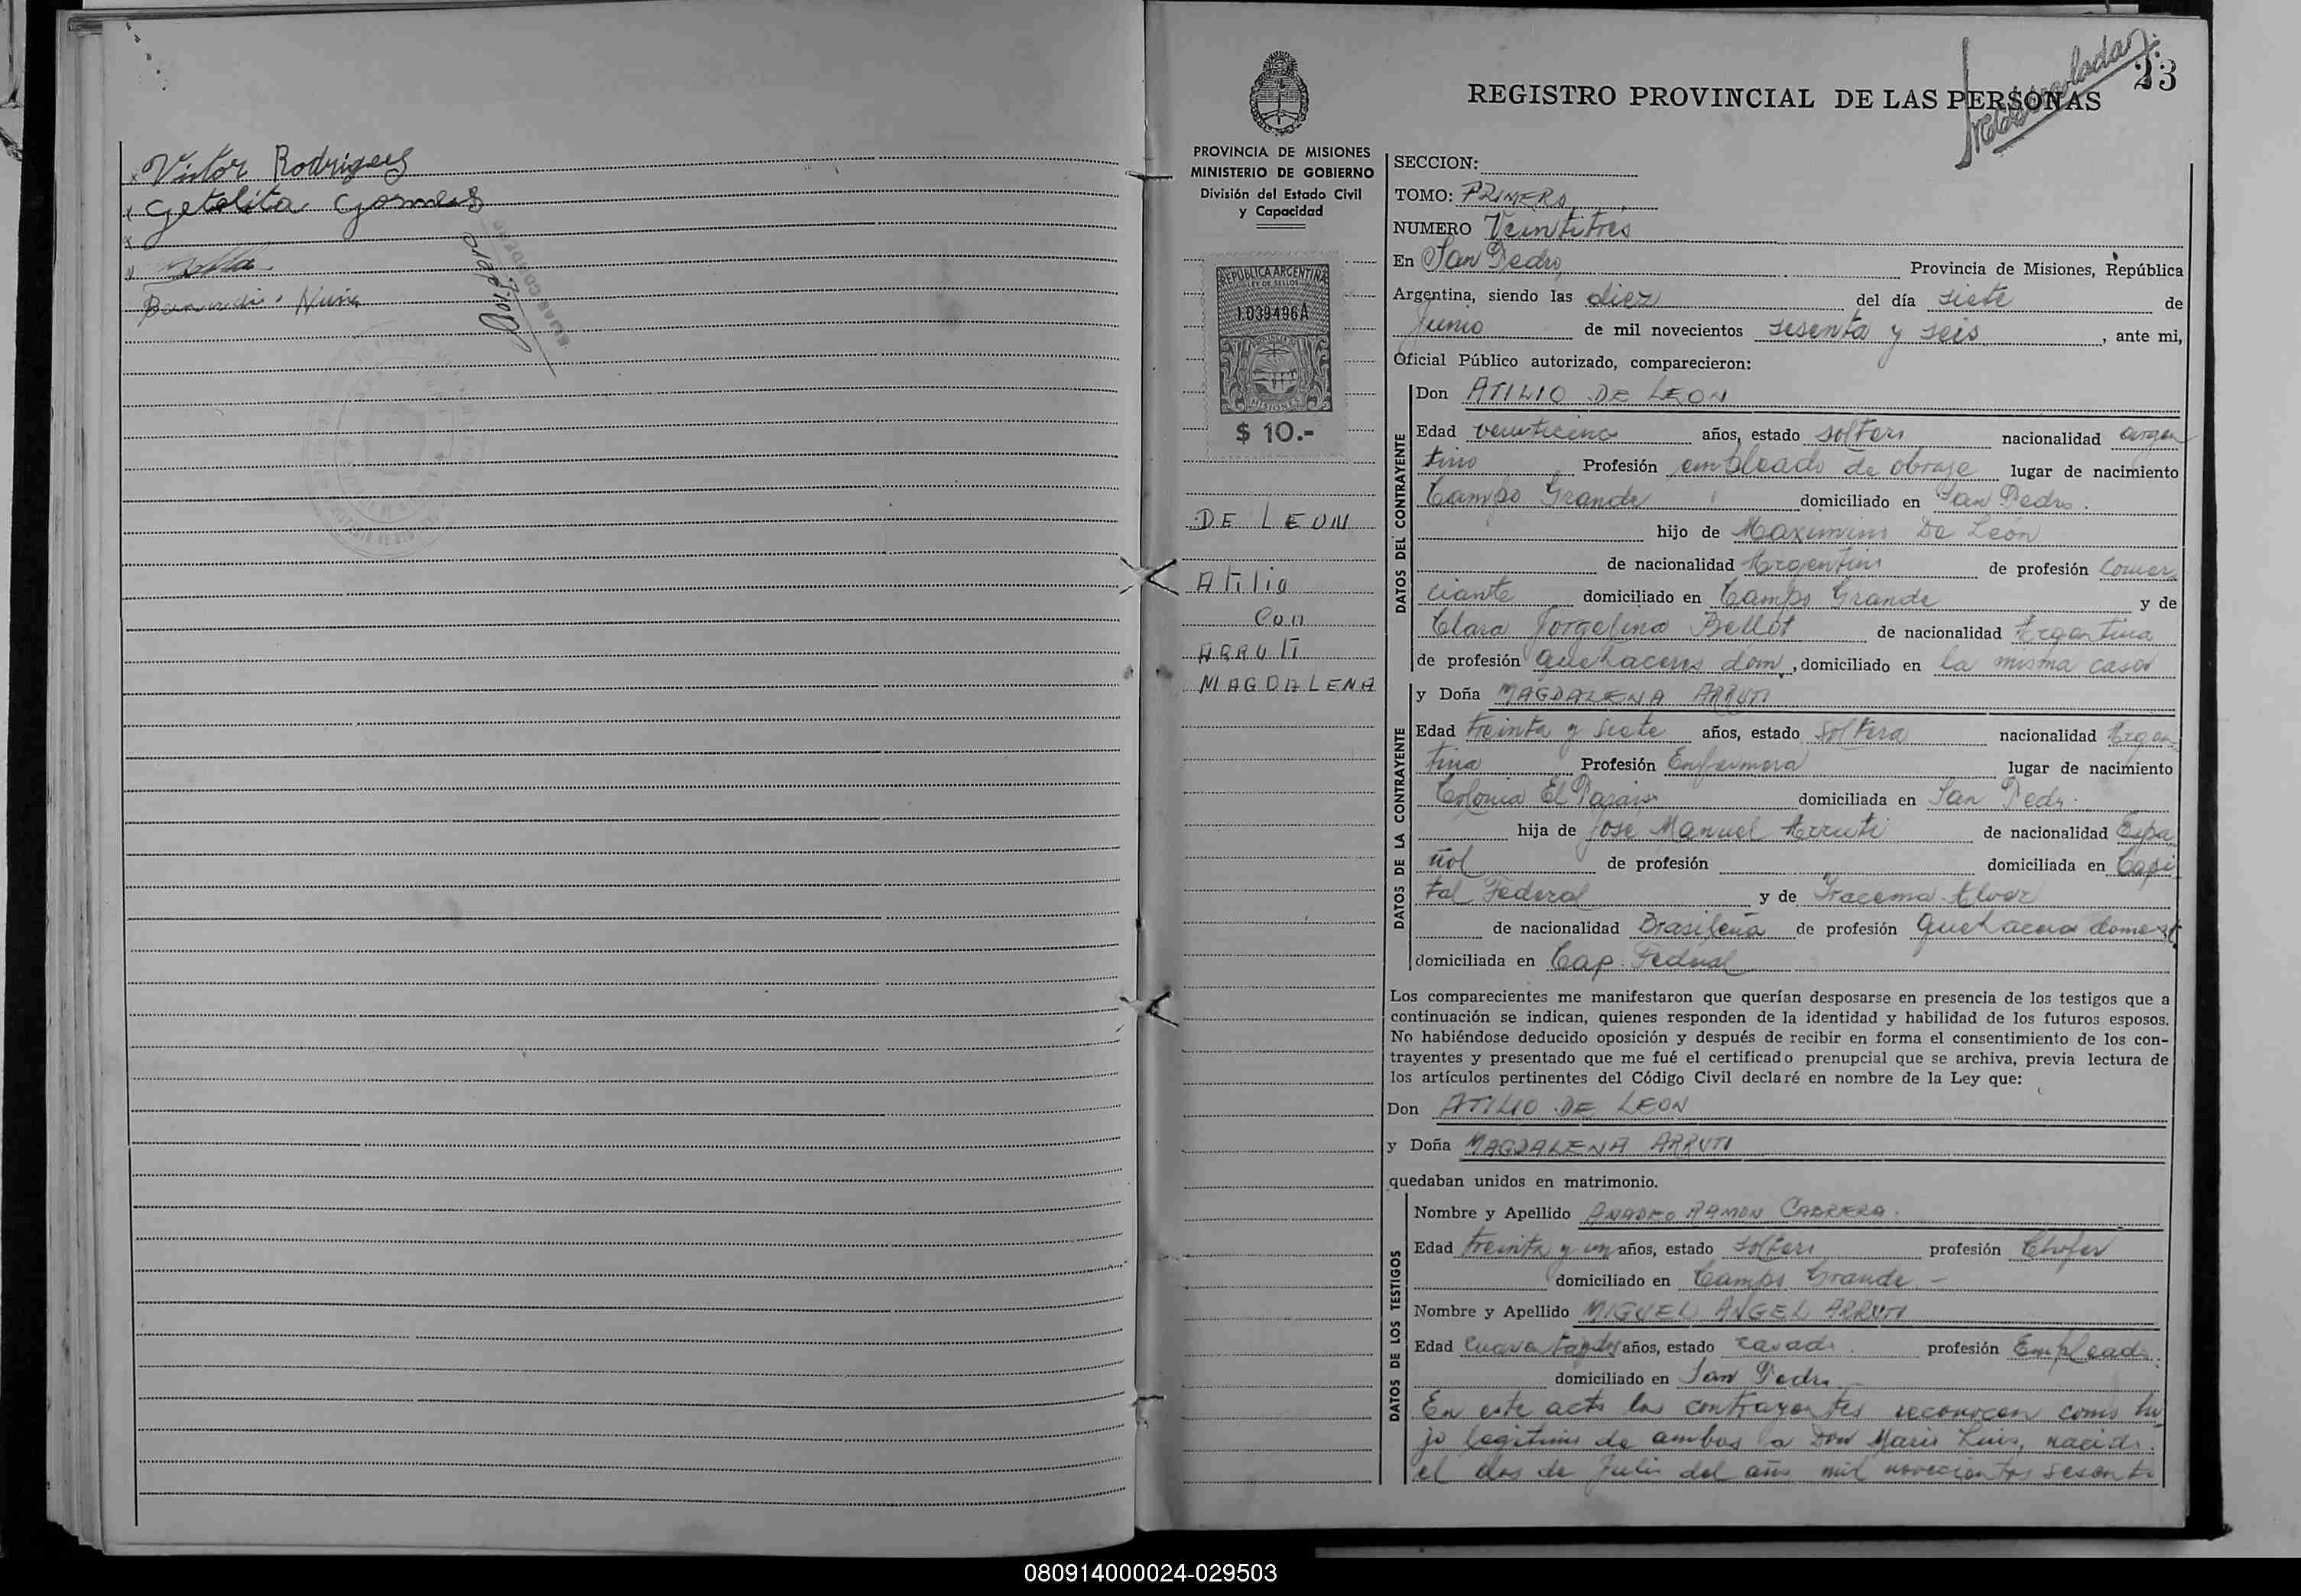 Victor Rodrigues
Getolita Gomes
Nuñez
23
REGISTRO PROVINCIAL DE LAS PERSONAS
PROVINCIA DE MISIONES
MINISTERIO DE GOBIERNO
División del Estado Civil
y Capacidad
REPUBLICA ARGENTINA
LEY DE SELLOS
1.039496A
MISIONES
$ 10.-
DE LEON
Atilio
Con
ARRUTI
MAGDALENA
SECCION:
TOMO: PRIMERO
NUMERO Veintitres
En San Pedro Provincia de Misiones, República
Argentina, siendo las diez del día siete de
Junio de mil novecientos sesenta y seis, ante mi,
Oficial Público autorizado, comparecieron:
DATOS DEL CONTRAYENTE
Don ATILIO DE LEON
Edad veinticinco años, estado soltero nacionalidad argen
tino Profesión empleado de obraje lugar de nacimiento
Campo Grande domiciliado en San Pedro.
hijo de Maximino De León
de nacionalidad Argentino de profesión Comer
ciante domiciliado en Campo Grande y de
Clara Jorgelina Bellot de nacionalidad Argentina
de profesión quehaceres dom, domiciliado en la misma casa
DATOS DE LA CONTRAYENTE
y Doña MAGDALENA ARRUTI
Edad treinta y siete años, estado soltera nacionalidad Argen
tina Profesión Enfermera lugar de nacimiento
Colonia El Paraiso domiciliada en San Pedro.
hija de José Manuel Arruti de nacionalidad Espa
ñol de profesión domiciliada en Capi
tal Federal y de Iracema Alvez
de nacionalidad Brasileña de profesión quehaceres domest.
domiciliada en Cap. Federal
Los comparecientes me manifestaron que querían desposarse en presencia de los testigos que a
continuación se indican, quienes responden de la identidad y habilidad de los futuros esposos.
No habiéndose deducido oposición y después de recibir en forma el consentimiento de los con-
trayentes y presentado que me fué el certificado prenupcial que se archiva, previa lectura de
los artículos pertinentes del Código Civil declaré en nombre de la Ley que:
Don ATILIO DE LEON
y Doña MAGDALENA ARRUTI
quedaban unidos en matrimonio.
DATOS DE LOS TESTIGOS
Nombre y Apellido AMADEO RAMON CABRERA.
Edad treinta y un años, estado soltero profesión Chofer
domiciliado en Campo Grande -
Nombre y Apellido MIGUEL ANGEL ARRUTI
Edad cuarenta y dos años, estado casado profesión Empleado.
domiciliado en San Pedro
En este acto los contrayentes reconocen como hi
jo legitimo de ambos a Don Mario Luis, nacido
el dos de Julio del año mil novecientos sesenta
080914000024-029503